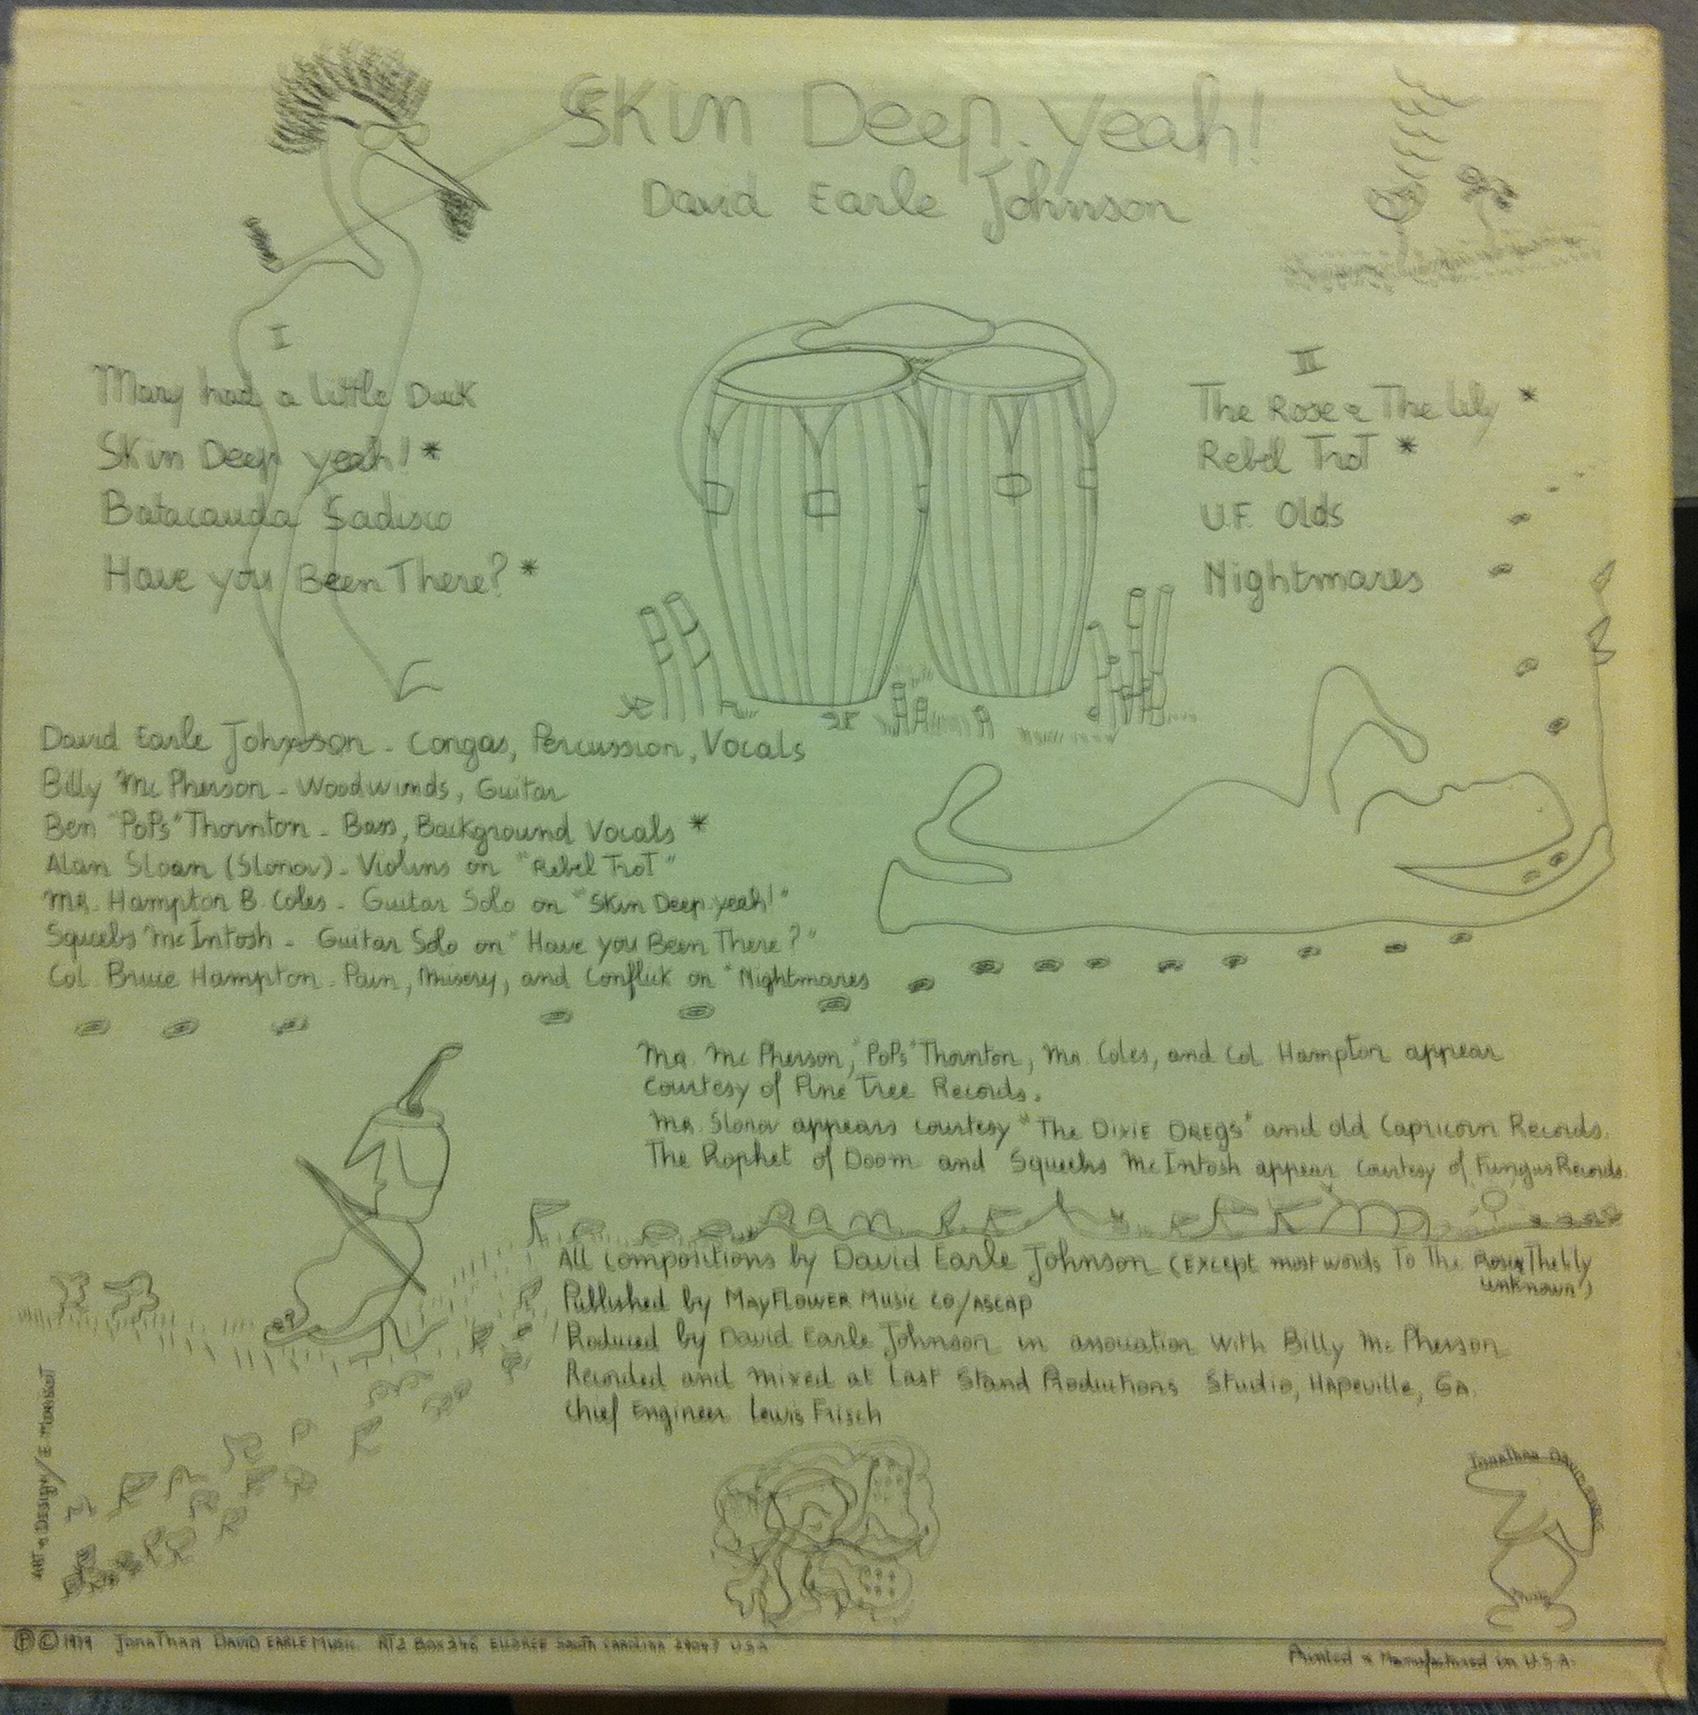 Skin Deep.yeah!
David Earle Johnson
I
Mary had a little Duck
Skin Deep yeah! *
Batacauda Sadisco
Have you Been There? *
II
The Rose & The Lily *
Rebel Trot *
U.F. Olds
Nightmares
David Earle Johnson - Congas, Percussion, Vocals
Billy Mc Pherson - Woodwinds, Guitar
Ben "PoPs" Thornton - Bass, Background Vocals *
Alan Sloan (Slonov) - Violins on "Rebel Trot"
MR. Hampton B. Coles - Guitar Solo on "Skin Deep.yeah!"
Squeebs McIntosh - Guitar Solo on "Have you Been There?"
Col. Bruce Hampton - Pain, Misery, and Conflick on "Nightmares
MR. Mc Pherson, "PoPs" Thornton, MR. Coles, and Col. Hampton appear
courtesy of Pine Tree Records.
MR. Slonov appears courtesy "The DIXIE DREGS" and old Capricorn Records.
The Prophet of Doom and Squeebs McIntosh appear courtesy of Fungus Records.
All compositions by David Earle Johnson (Except most words To The Rose & The lily
unknown)
Published by MAYFLOWER MUSIC CO/ASCAP
Produced by David Earle Johnson in association with Billy Mc Pherson
Recorded and mixed at Last Stand Productions Studio, Hapeville, GA.
Chief Engineer Lewis Frisch
ART & DESIGN/E. 
Jonathan David Earle
Music
Ⓟ©1979 JONATHAN DAVID EARLE MUSIC RT2 BOX246 ELLOREE SOUTH CAROLINA 29047 USA
Printed & Manufactured in U.S.A.